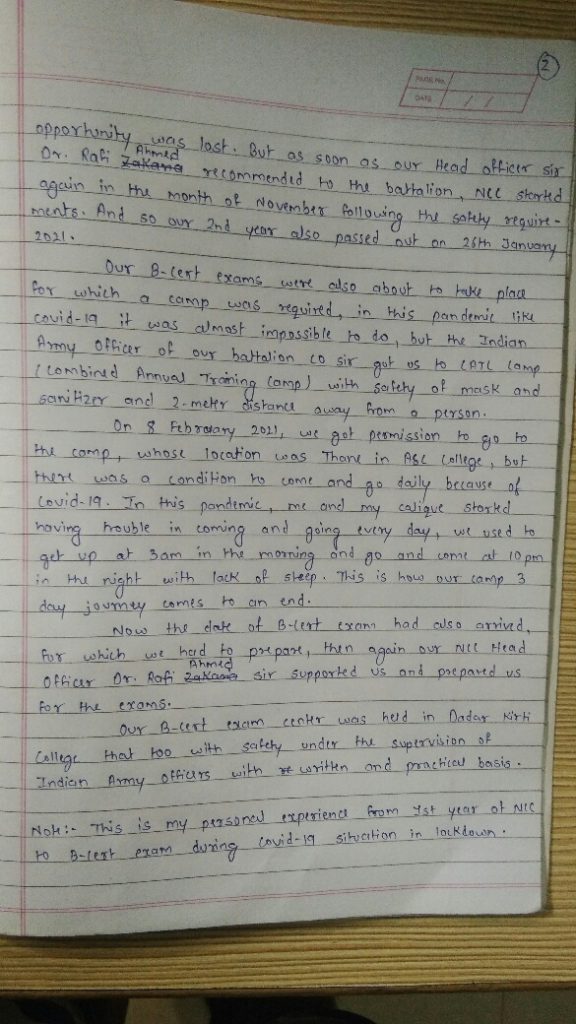 2
PAGE No.
DATE / /
opportunity was lost. But as soon as our Head officer sir
Ahmed
Dr. Rafi Zakaria recommended to the battalion, NCC started
again in the month of November following the safety require-
ments. And so our 2nd year also passed out on 26th January
2021.
Our B-cert exams were also about to take place
for which a camp was required, in this pandemic like
covid-19 it was almost impossible to do, but the Indian
Army Officer of our battalion CO sir got us to CATC Camp
(Combined Annual Training Camp) with safety of mask and
sanitizer and 2-meter distance away from a person.
On 8 February 2021, we got permission to go to
the camp, whose location was Thane in ASC College, but
there was a condition to come and go daily because of
Covid-19. In this pandemic, me and my calique started
having trouble in coming and going every day, we used to
get up at 3am in the morning and go and come at 10 pm
in the night with lack of sleep. This is how our camp 3
day journey comes to an end.
Now the date of B-cert exam had also arrived,
for which we had to prepare, then again our NCC Head
Ahmed
Officer Dr. Rafi Zakaria sir supported us and prepared us
for the exams.
Our B-cert exam center was held in Dadar Kirti
College that too with safety under the supervision of
Indian Army officers with written and practical basis.
Note:- This is my personal experience from 1st year of NCC
to B-cert exam during covid-19 situation in lockdown.